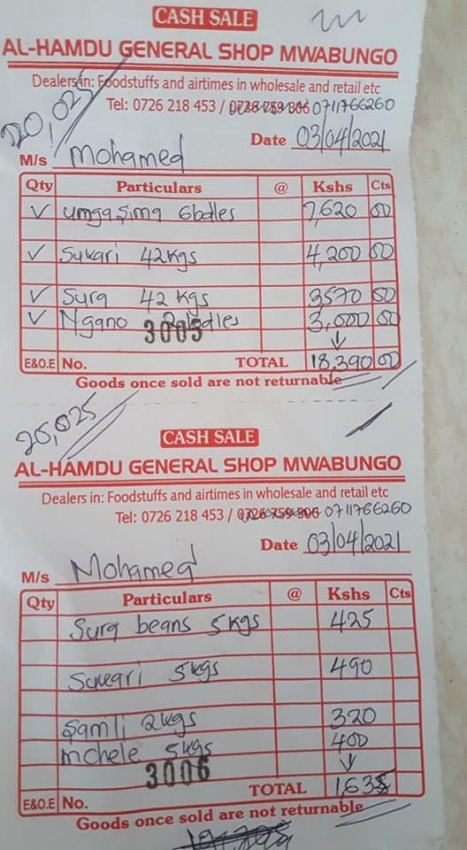 CASH SALE
AL-HAMDU GENERAL SHOP MWABUNGO
Dealers in: Foodstuffs and airtimes in wholesale and retail etc
Tel: 0726 218 453 / 0728 759 806 0711766260
20,025
Date 03/04/2021
M/s Mohamed
Qty Particulars @ Kshs Cts
✓ umga sima 6bdles 7,620 00
✓ Sukari 42kgs 4,200 00
✓ Sura 42 kgs 3570 00
✓ Ngano bdles 3,000 00
3005
E&O.E No. TOTAL 18,390 00
Goods once sold are not returnable
20,025
CASH SALE
AL-HAMDU GENERAL SHOP MWABUNGO
Dealers in: Foodstuffs and airtimes in wholesale and retail etc
Tel: 0726 218 453 / 0728 759 806 0711766260
Date 03/04/2021
M/s Mohamed
Qty Particulars @ Kshs Cts
Sura beans 5kgs 425
Sukari 5kgs 490
Samli 2kgs 320
mchele 5kgs 400
3006
E&O.E No. TOTAL 1,635
Goods once sold are not returnable